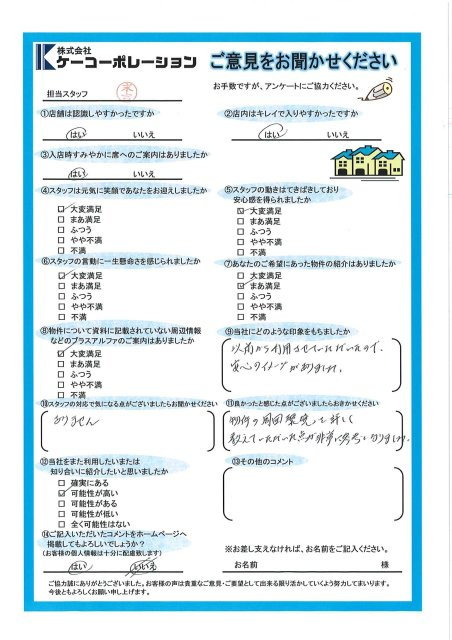 株式会社
ケーコーポレーション
ご意見をお聞かせください
お手数ですが、アンケートにご協力ください。
担当スタッフ
①店舗は認識しやすかったですか
はい いいえ
②店内はキレイで入りやすかったですか
はい いいえ
③入店時すみやかに席へのご案内はありましたか
はい いいえ
④スタッフは元気に笑顔であなたをお迎えしましたか
大変満足
まあ満足
ふつう
やや不満
不満
⑤スタッフの動きはてきぱきしており
安心感を得られましたか
大変満足
まあ満足
ふつう
やや不満
不満
⑥スタッフの言動に一生懸命さを感じられましたか
大変満足
まあ満足
ふつう
やや不満
不満
⑦あなたのご希望にあった物件の紹介はありましたか
大変満足
まあ満足
ふつう
やや不満
不満
⑧物件について資料に記載されていない周辺情報
などのプラスアルファのご案内はありましたか
大変満足
まあ満足
ふつう
やや不満
不満
⑨当社にどのような印象をもちましたか
以前から利用させていただいたので、
安心のイメージがありました。
⑩スタッフの対応で気になる点がございましたらお聞かせください
ありません
⑪良かったと感じた点がございましたらおきかせください
物件の周囲環境も詳しく
教えていただいた点が非常に参考になりました。
⑫当社をまた利用したいまたは
知り合いに紹介したいと思いましたか
確実にある
可能性が高い
可能性がある
可能性が低い
全く可能性はない
⑬その他のコメント
⑭ご記入いただいたコメントをホームページへ
掲載してもよろしいでしょうか?
(お客様の個人情報は十分に配慮致します)
はい いいえ
※お差し支えなければ、お名前をご記入ください。
お名前 様
ご協力誠にありがとうございました。お客様の声は貴重なご意見・ご要望として出来る限り活かしていくよう努力してまいります。
今後ともよろしくお願い申し上げます。